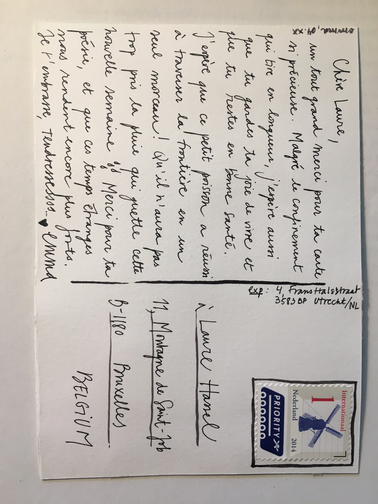 Chère Laure,
un tout grand merci pour ta carte
si précieuse. Malgré le confinement
qui tire en longueur, j'espère aussi
que tu gardes ta joie de vivre et
que tu restes en bonne santé.
J'espère que ce petit poisson a réussi
à traverser la frontière en un
seul morceau! Qu'il n'aura pas
trop pris la pluie qui guette cette
nouvelle semaine. Merci pour ta
poésie, et que ces temps étranges
nous rendent encore plus fortes.
Je t'embrasse, Tendressesss. ♥ Emma
exp: 4, Frans Halsstraat
3583 BP Utrecht/NL
à Laure Hanel
11, Montagne de Saint-Job
B-1180 Bruxelles
BELGIUM
Internationaal
1
Nederland 2014
PRIORITY